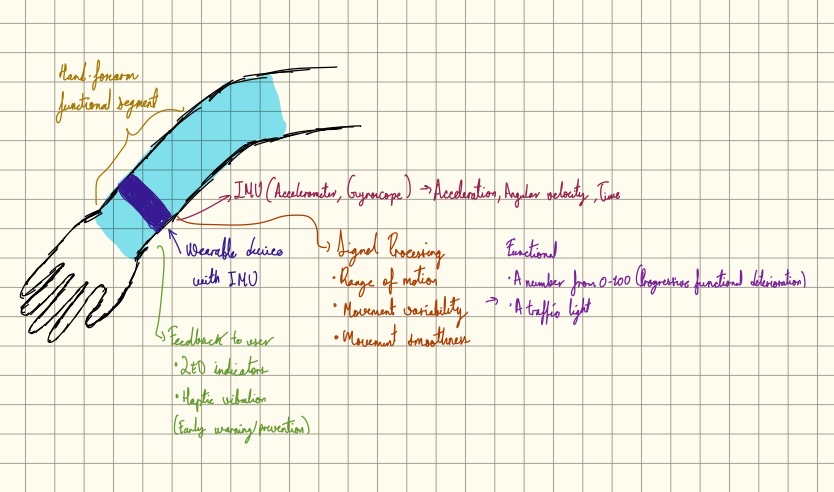 Hand-forearm
functional segment
IMU (Accelerometer, Gyroscope) → Acceleration, Angular velocity, Time
Wearable device
with IMU
Signal Processing
• Range of motion
• Movement variability
• Movement smoothness
Functional
• A number from 0-100 (Progressive functional deterioration)
→ • A traffic light
Feedback to user
• LED indicators
• Haptic vibration
(Early warning/prevention)